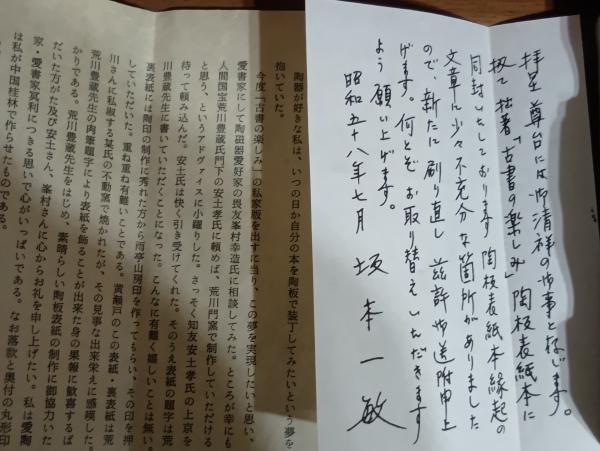 拝呈 尊台には御清祥の御事と存じます。
扨て 拙著「古書の楽しみ」陶板表紙本に
同封いたしております 陶板表紙本縁起の
文章に少々不充分な箇所がありました
ので、新たに刷り直し 茲許御送附申上
げます。何とぞお取り替えいただきます
よう願い上げます。
昭和五十八年七月 坂本一敏
陶器が好きな私は、いつの日か自分の本を陶板で装丁してみたいという夢を
抱いていた。
今度『古書の楽しみ』の私家版を出すに当り、この夢を実現したいと思い、
愛書家にして陶磁器愛好家の畏友峯村幸造氏に相談してみた。ところが幸にも
人間国宝荒川豊蔵氏門下の安土孝氏に頼めば、荒川門窯で制作していただける
と思う、というアドヴァイスに小躍りした。さっそく知友安土孝氏の上京を
待って頼み込んだ。安土氏は快く引き受けてくれた。そのうえ表紙の題字は荒
川豊蔵先生に書いていただくことになった。こんなに有難く嬉しいことは無い。
裏表紙には陶印の制作に秀れた方から雨亭山房印を作ってもらい、その印を押
していただいた。重ね重ね有難いことである。黄瀬戸のこの表紙・裏表紙は荒
川さんに私淑する某氏の不動窯で焼かれたが、その見事な出来栄えに感嘆した。
荒川豊蔵先生の肉筆題字により表紙を飾ることが出来た身の果報に歓喜するば
かりである。荒川豊蔵先生をはじめ、素晴らしい陶板表紙の制作に御協力いた
だいた方がた及び安土さん、峯村さんに心からお礼を申し上げたい。私は愛陶
家・愛書家冥利につきる思いで心がいっぱいである。なお落款と奥付の丸形印
は私が中国桂林で作らせたものである。